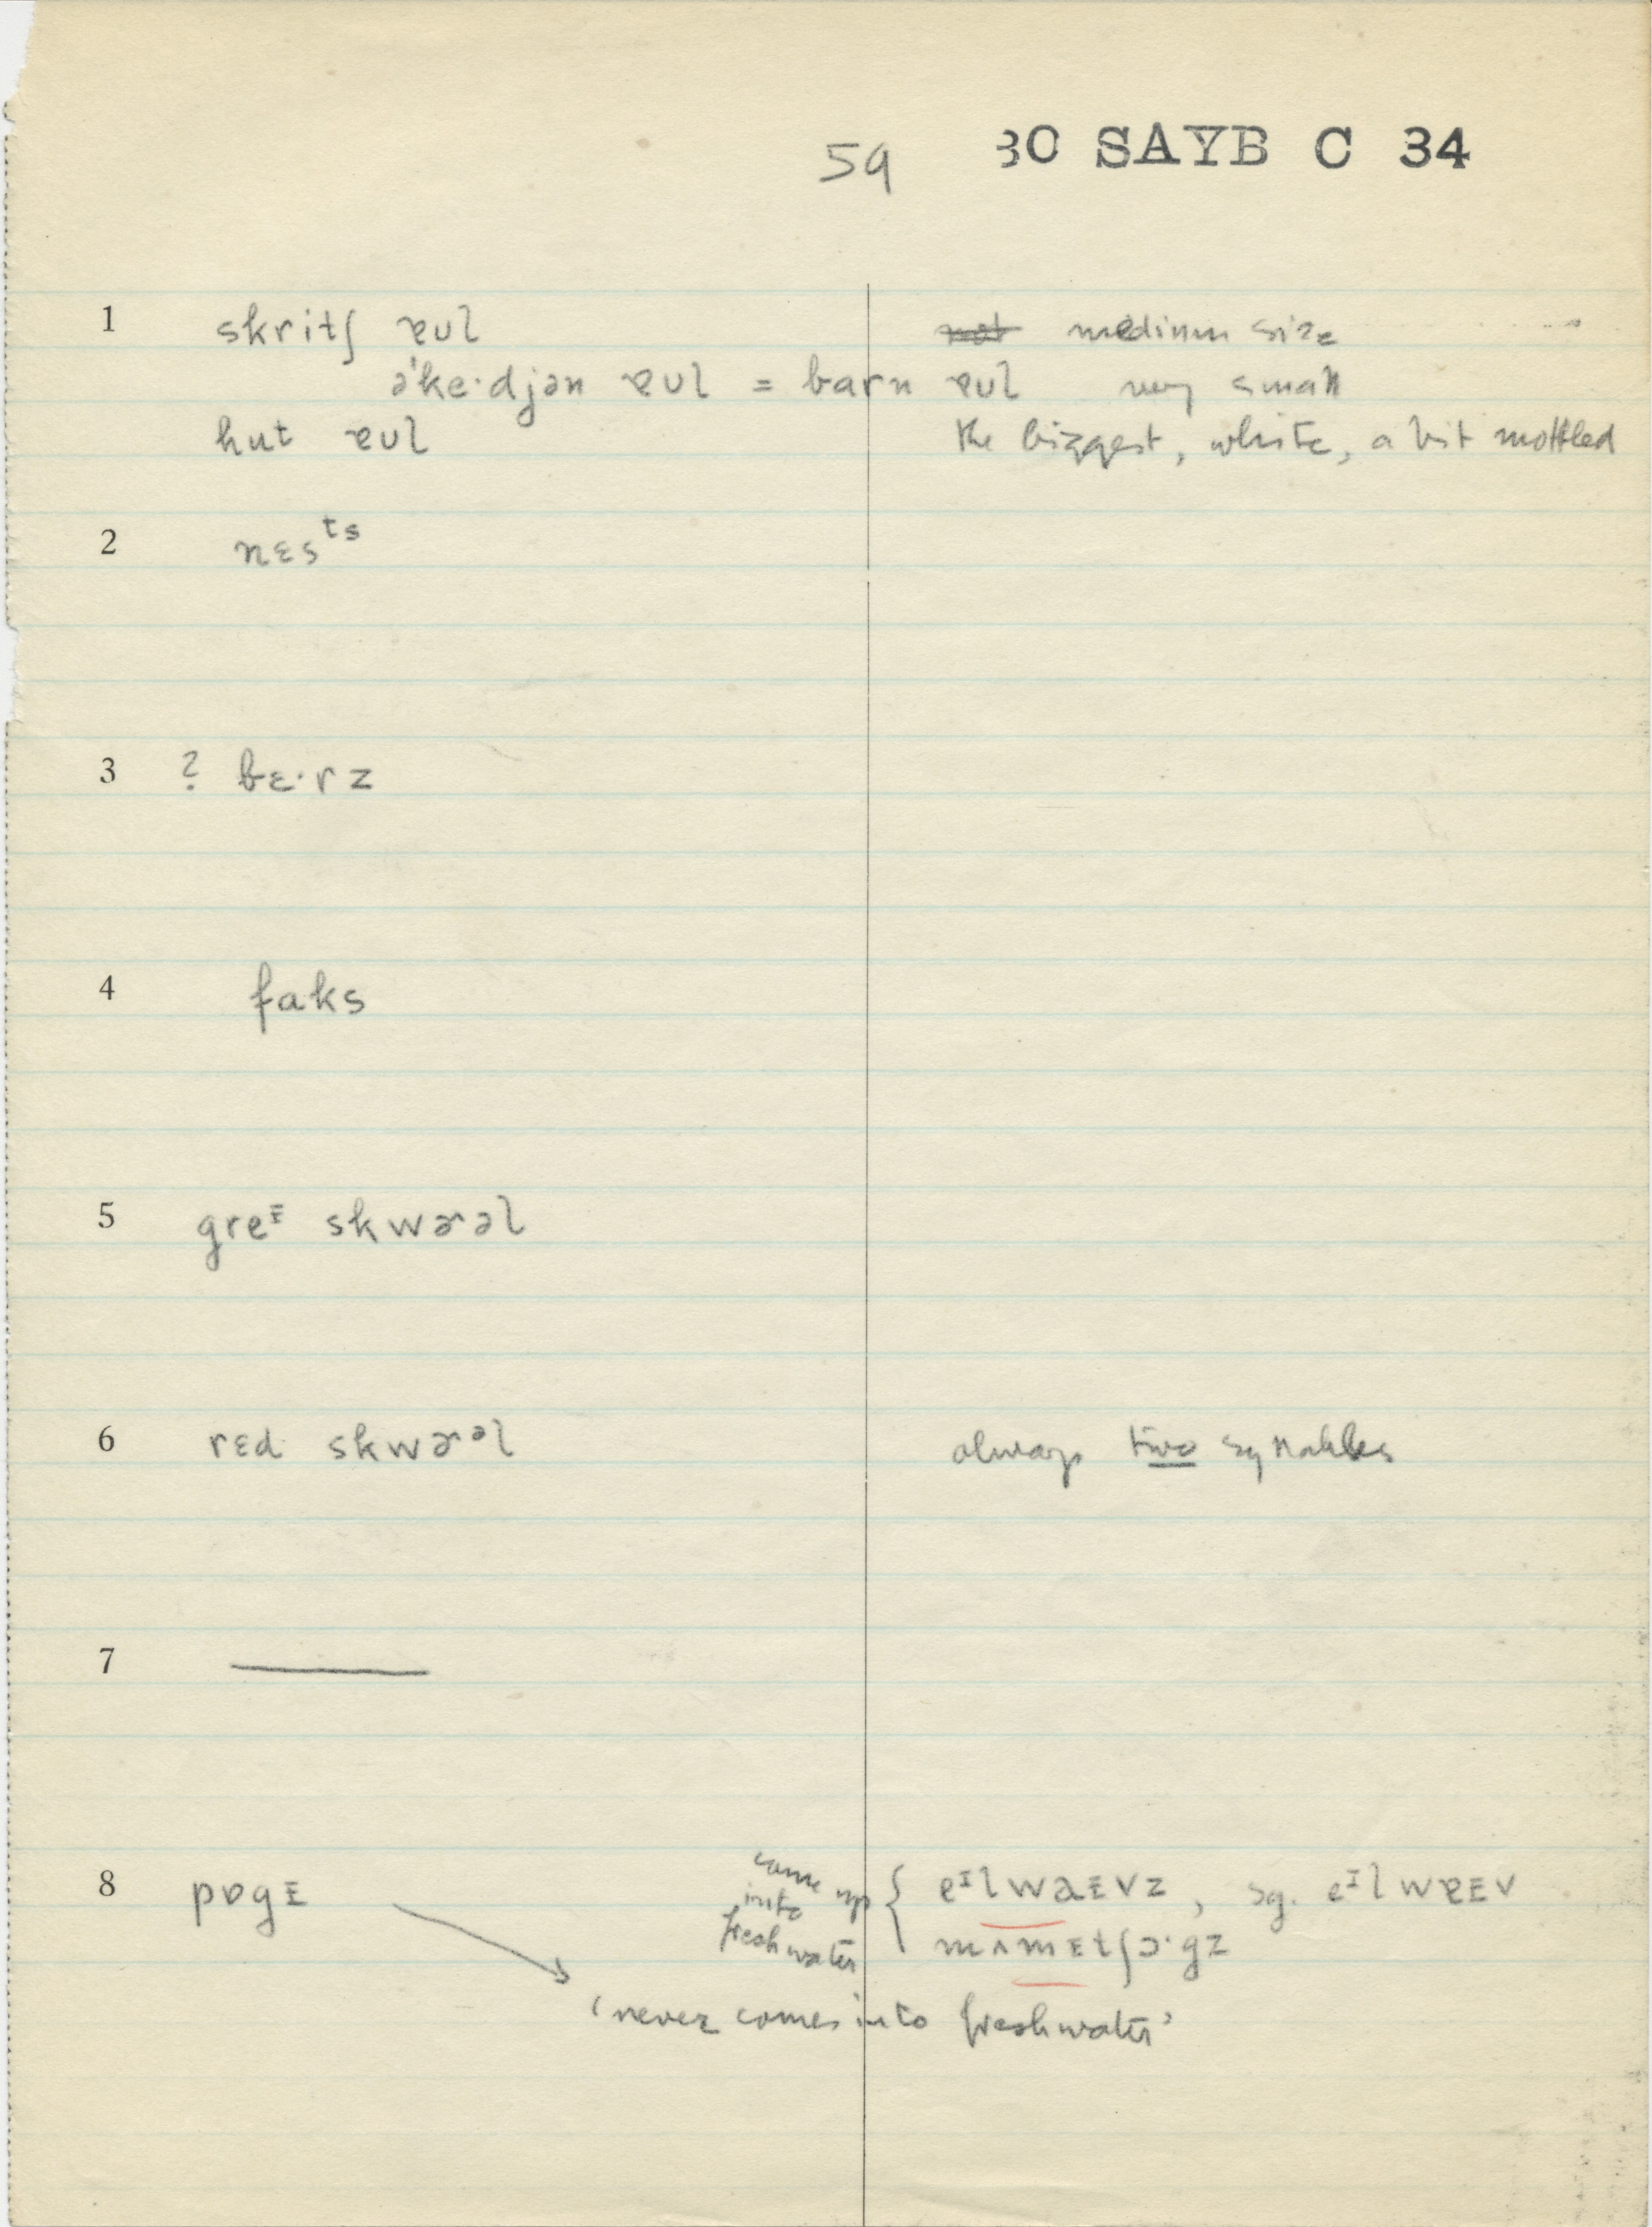 59 30 SAYB C 34
1 skritʃ ɐʊl medium size
ə'ke·djən ɐʊl = barn ɐʊl very small
hut ɐʊl the biggest, white, a bit mottled
2 nɛsᵗˢ
3 ? bɛ·rz
4 faks
5 greᶦ skwɚəl
6 rɛd skwɚᵊl always two syllables
7
8 pɒgɪ come up into freshwater { eᶦlwaɪvz, sg. eᶦlwɐɪv
mʌmɪtʃɔ·gz
'never comes into freshwater'